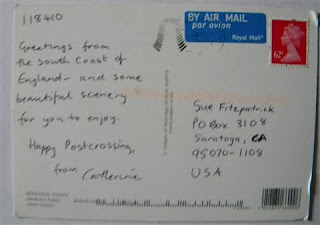 118410
Greetings from
the South Coast of
England - and some
beautiful scenery
for you to enjoy.
Happy Postcrossing,
from Catherine
BY AIR MAIL
par avion
Royal Mail
Sue Fitzpatrick
PO Box 3108
Saratoga, CA
95070-1108
USA